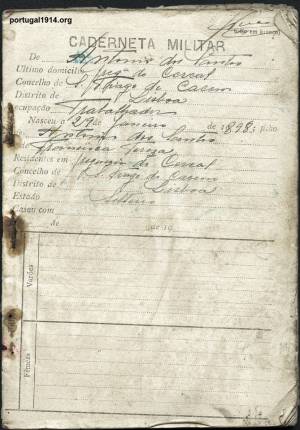 portugal1914.org
CADERNETA MILITAR
De Antonio dos Santos
Ultimo domicilio freg.ª do Cercal
Concelho de S. Thiago de Cacem
Distrito de Lisboa
ocupação Trabalhador
Nasceu a 29 de Janeiro de 1898; filho
de Antonio dos Santos
e de Francisca Tereza
Residentes em freguezia do Cercal
Concelho de S. Tiago de Cacem
Distrito de Lisboa
Estado Solteiro
Casou com
de de 19
Varões
Fêmeas